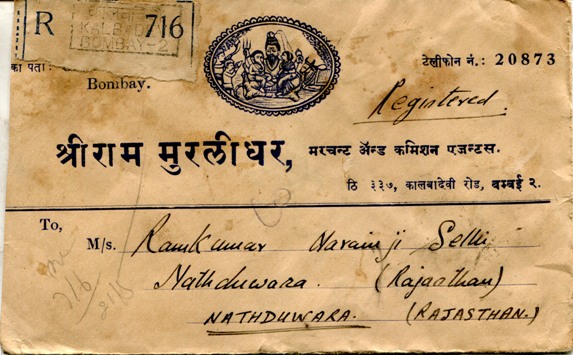 R 716
KALBADEVI
BOMBAY-2
का पता:
Bombay.
टेलीफोन नं.: 20873
Registered.
श्रीराम मुरलीधर, मरचन्ट ॲन्ड कमिशन एजन्टस.
ठि ३३७, कालबादेवी रोड, बम्बई २.
To,
M/s. Ramkumar Narainji Sethi
Nathduwara. (Rajasthan)
NATHDUWARA. (RAJASTHAN.)
716